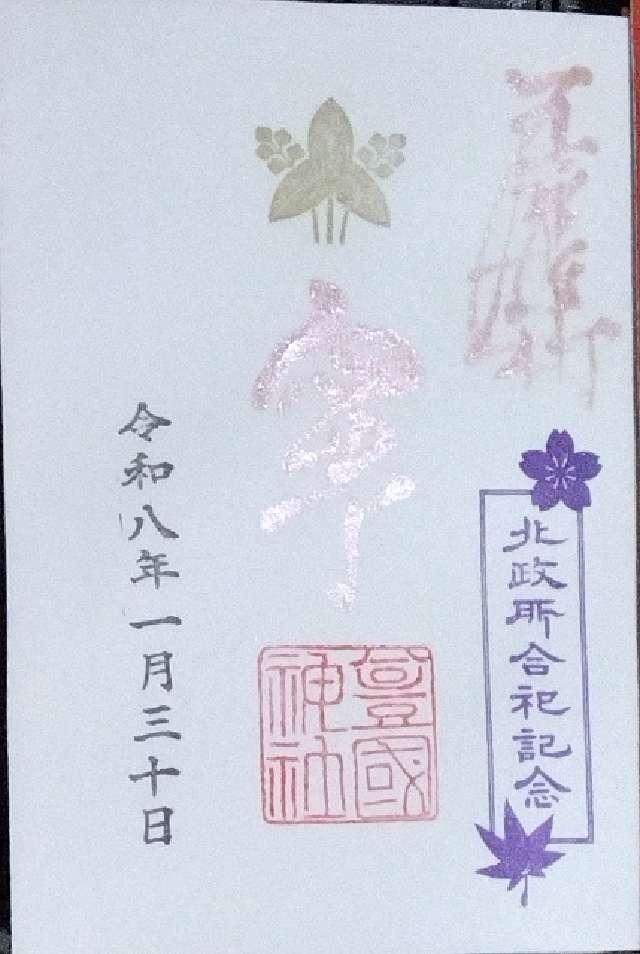 北政所合祀記念
豊國
神社
令和八年一月三十日